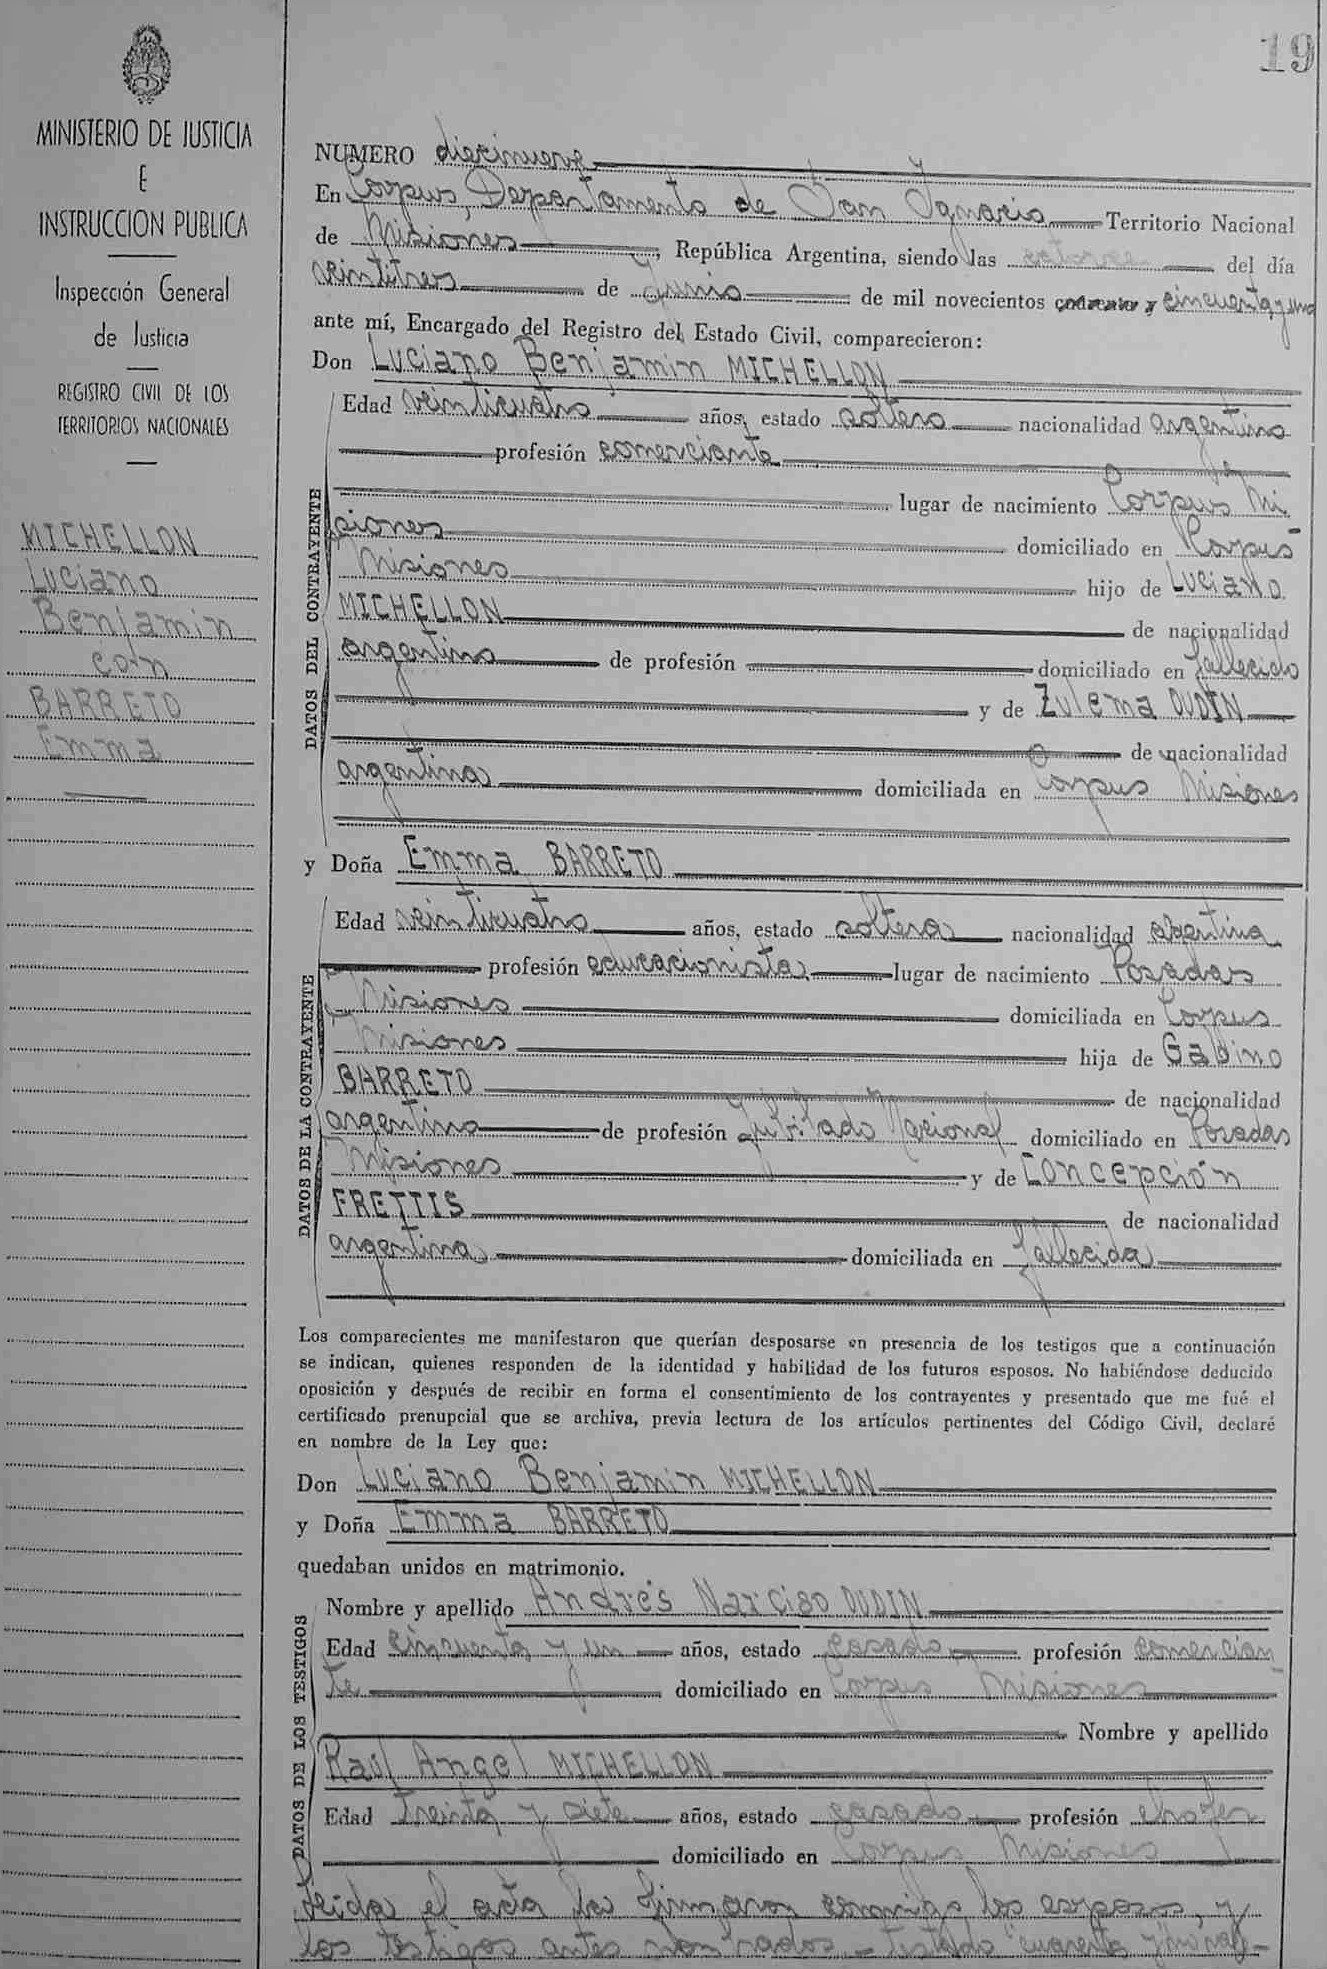 19
MINISTERIO DE JUSTICIA
E
INSTRUCCION PUBLICA
Inspección General
de Justicia
REGISTRO CIVIL DE LOS
TERRITORIOS NACIONALES
MICHELLON
Luciano
Benjamin
con
BARRETO
Emma
NUMERO diecinueve
En Corpus, Departamento de San Ignacio Territorio Nacional
de Misiones, República Argentina, siendo las catorce del día
veintitres de junio de mil novecientos cincuenta y uno
ante mí, Encargado del Registro del Estado Civil, comparecieron:
Don Luciano Benjamin MICHELLON
DATOS DEL CONTRAYENTE
Edad veinticuatro años, estado soltero nacionalidad argentino
profesión comerciante
lugar de nacimiento Corpus Mi
siones domiciliado en Corpus
Misiones hijo de Luciano
MICHELLON de nacionalidad
argentino de profesión domiciliado en fallecido
y de Zulema OUDIN
de nacionalidad
argentina domiciliada en Corpus Misiones
y Doña Emma BARRETO
DATOS DE LA CONTRAYENTE
Edad veinticuatro años, estado soltera nacionalidad argentina
profesión educacionista lugar de nacimiento Posadas
Misiones domiciliada en Corpus
Misiones hija de Gabino
BARRETO de nacionalidad
argentino de profesión Jubilado Nacional domiciliado en Posadas
Misiones y de Concepción
FRETTIS de nacionalidad
argentina domiciliada en fallecida
Los comparecientes me manifestaron que querían desposarse en presencia de los testigos que a continuación
se indican, quienes responden de la identidad y habilidad de los futuros esposos. No habiéndose deducido
oposición y después de recibir en forma el consentimiento de los contrayentes y presentado que me fué el
certificado prenupcial que se archiva, previa lectura de los artículos pertinentes del Código Civil, declaré
en nombre de la Ley que:
Don Luciano Benjamin MICHELLON
y Doña Emma BARRETO
quedaban unidos en matrimonio.
DATOS DE LOS TESTIGOS
Nombre y apellido Andrés Narciso OUDIN
Edad cincuenta y un años, estado casado profesión comercian
te domiciliado en Corpus Misiones
Nombre y apellido
Raúl Angel MICHELLON
Edad treinta y siete años, estado casado profesión chofer
domiciliado en Corpus Misiones
leida el acta la firmaron conmigo los esposos, y
los testigos antes nombrados - Testado "cuarenta y"